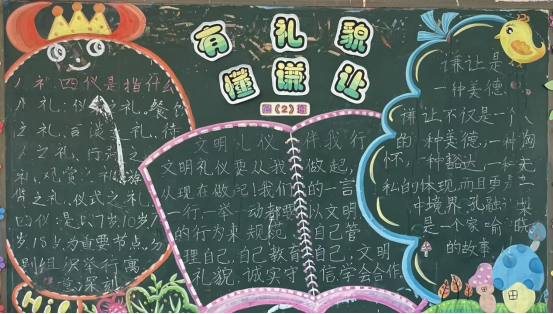 有礼貌
懂谦让
四(2)班
八礼四仪是指什么
八礼:仪 之礼、餐饮
之礼、言谈之礼、待
之礼、行 之
礼、观赏之礼、
之礼、仪式之礼
四仪:是以7岁、10岁、
岁、18岁为重要节点,分
别组织举行寓
意深刻
Hi!
文明礼仪 伴我行
文明礼仪要从我 做起,
从现在做起!我们 的一言
一行一举一动都要 以文明
的行为来规范 自己管
理自己,自己教育自己,文明
礼貌,诚实守信学会合作
谦让是
一种美德
谦让不仅是一个人
的一种美德,一种胸
怀,一种豁达,一种无
私的体现,而且更是一
中境界。孔融让梨
是一个家喻 晓
的故事